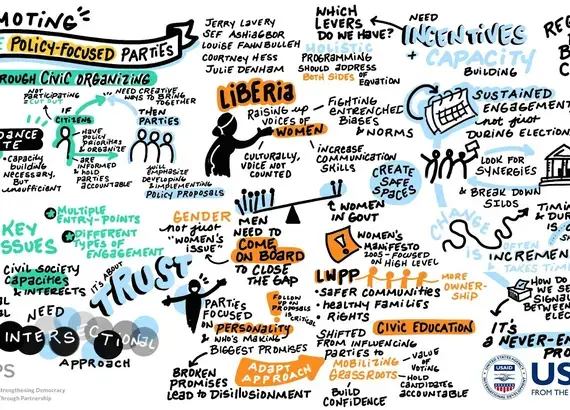 MOTING
POLICY-FOCUSED PARTIES
ROUGH CIVIC ORGANIZING
NOT
PARTICIPATING
= CUT OUT
NEED CREATIVE
WAYS TO BRING
TOGETHER
IF
CITIZENS
THEN
PARTIES
HAVE
POLICY
PRIORITIES
& ORGANIZE
DANCE
TE
• CAPACITY
BUILDING
NECESSARY.
BUT
INSUFFICIENT
ARE
INFORMED &
HOLD
PARTIES
ACCOUNTABLE
WILL
EMPHASIZE
DEVELOPING
& IMPLEMENTING
POLICY PROPOSALS
KEY
ISSUES
MULTIPLE
ENTRY-POINTS
DIFFERENT
TYPES OF
ENGAGEMENT
CIVIL SOCIETY
CAPACITIES
& INTERESTS
IT'S ABOUT
TRUST
NEED
INTERSECTIONAL
APPROACH
PS
Strengthening Democracy
Through Partnership
JERRY LAVERY
SEF ASHIAGBOR
LOUISE FAHNBULLEH
COURTNEY HESS
JULIE DENHAM
LIBERIA
RAISING UP
VOICES OF
WOMEN
• CULTURALLY,
VOICE NOT
COUNTED
FIGHTING
ENTRENCHED
BIASES
& NORMS
INCREASE
COMMUNICATION
SKILLS
GENDER
NOT JUST
"WOMEN'S
ISSUE"
MEN
NEED TO
COME
ON BOARD
TO CLOSE
THE GAP
WOMEN
IN GOV'T
CREATE
SAFE
SPACES
WOMEN'S
MANIFESTO
2005 - FOCUSED
ON HIGH LEVEL
LWPP
MORE
OWNER-
SHIP
• SAFER COMMUNITIES
• HEALTHY FAMILIES
• RIGHTS
PARTIES
FOCUSED
ON
PERSONALITY
& WHO'S MAKING
BIGGEST PROMISES
FOLLOW
UP ON
PROPOSALS
IS
CRITICAL
BROKEN
PROMISES
LEAD TO DISILLUSIONMENT
ADAPT
APPROACH
SHIFTED
FROM INFLUENCING
PARTIES TO
MOBILIZING
GRASSROOTS
BUILD
CONFIDENCE
CIVIC EDUCATION
- VALUE
OF
VOTING
- HOLD
CANDIDATES
ACCOUNTABLE
WHICH
LEVERS
DO WE HAVE?
HOLISTIC
PROGRAMMING
SHOULD ADDRESS
BOTH SIDES OF
EQUATION
NEED
INCENTIVES
+ CAPACITY
BUILDING
SUSTAINED
ENGAGEMENT
NOT JUST
DURING ELECTION
LOOK FOR
SYNERGIES
& BREAK DOWN
SILOS
CHANGE
IS OFTEN
INCREMEN
& TAKES TIME
TIMIN
& DUR
IS
HOW DO
WE SE
SIGNAL
BETWEEN
ELEC
IT'S
A NEVER-EN
PR
US
FROM THE